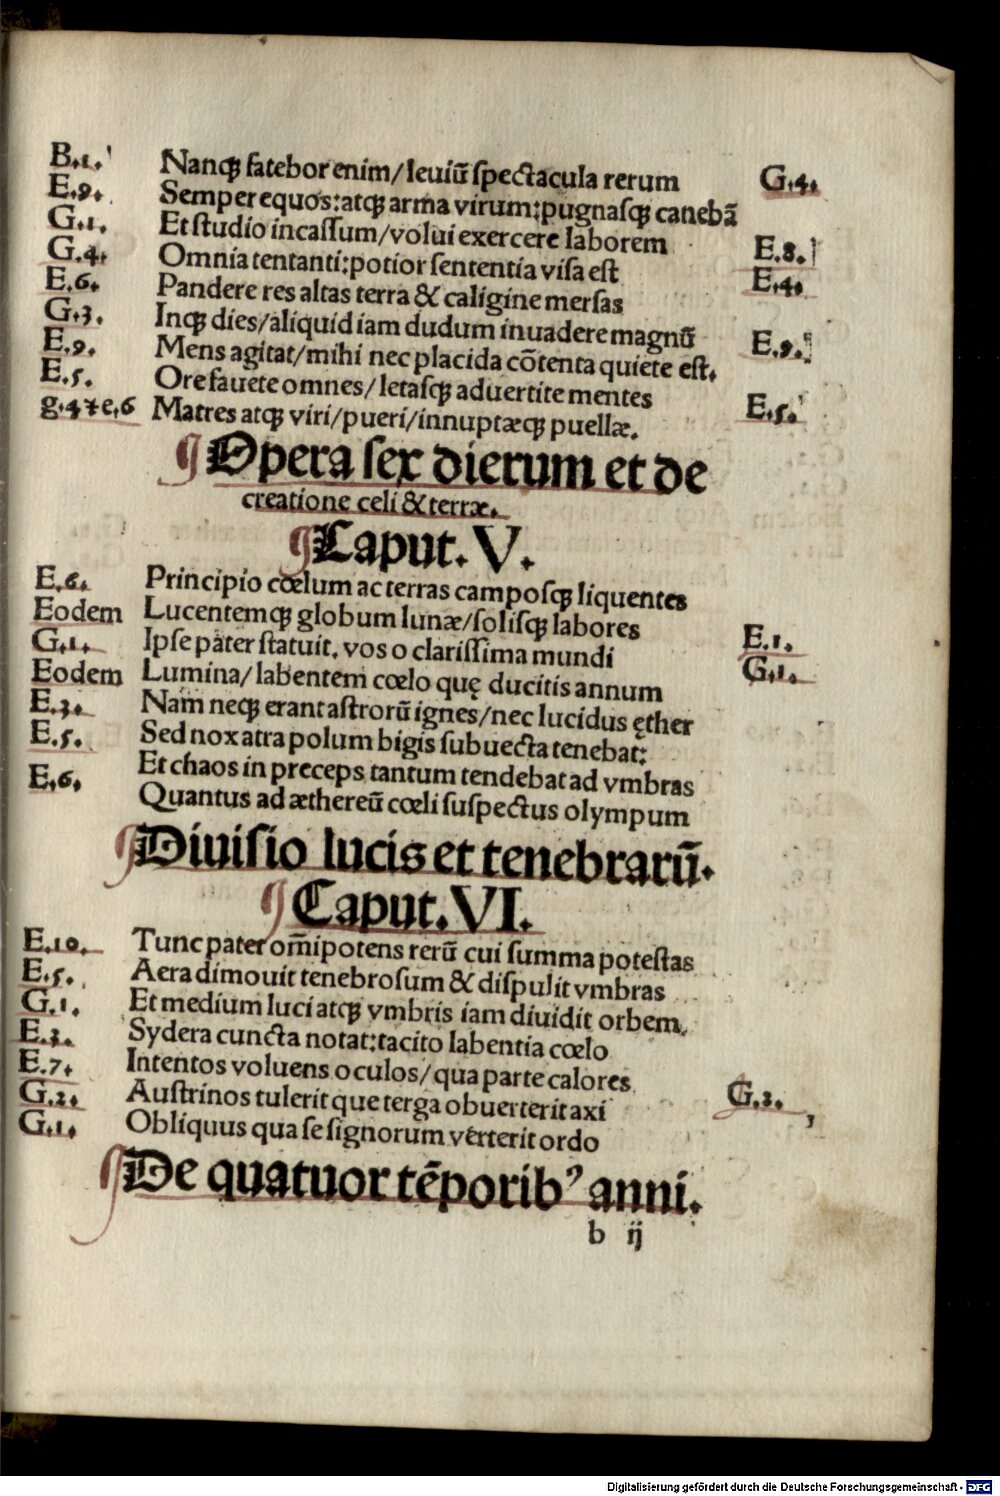 B.1. Nanqꝫ fatebor enim/leuiū ſpectacula rerum G.4.
E.9. Semper equos:atqꝫ arma virum:pugnaſqꝫ canebā
G.1. Et ſtudio incaſſum/volui exercere laborem E.8.
G.4. Omnia tentanti:potior ſententia viſa eſt E.4.
E.6. Pandere res altas terra & caligine merſas
G.3. Inqꝫ dies/aliquid iam dudum inuadere magnū E.9.
E.9. Mens agitat/mihi nec placida cōtenta quiete eſt.
E.5. Ore fauete omnes/letaſqꝫ aduertite mentes E.5.
g.4⁊e.6 Matres atqꝫ viri/pueri/innuptæqꝫ puellæ.
¶Opera ſex dierum et de
creatione celi & terræ.
¶Caput.V.
E.6. Principio cœlum ac terras campoſqꝫ liquentes
Eodem Lucentemqꝫ globum lunæ/ſoliſqꝫ labores
G.1. Ipſe pater ſtatuit. vos o clariſſima mundi E.1.
Eodem Lumina/labentem cœlo quę ducitis annum G.1.
E.3. Nam neqꝫ erant aſtrorū ignes/nec lucidus ęther
E.5. Sed nox atra polum bigis ſubuecta tenebat:
E.6. Et chaos in preceps tantum tendebat ad vmbras
Quantus ad æthereū cœli ſuſpectus olympum
¶Diuiſio lucis et tenebrarū.
¶Caput.VI.
E.10. Tunc pater om̄ipotens rerū cui ſumma poteſtas
E.5. Aera dimouit tenebroſum & diſpulit vmbras
G.1. Et medium luci atqꝫ vmbris iam diuidit orbem.
E.3. Sydera cuncta notat:tacito labentia cœlo
E.7. Intentos voluens oculos/qua parte calores
G.2. Auſtrinos tulerit que terga obuerterit axi G.3.
G.1. Obliquus qua ſe ſignorum verterit ordo
¶De quatuor tēporibꝰ anni.
b ij
Digitalisierung gefördert durch die Deutsche Forschungsgemeinschaft - DFG